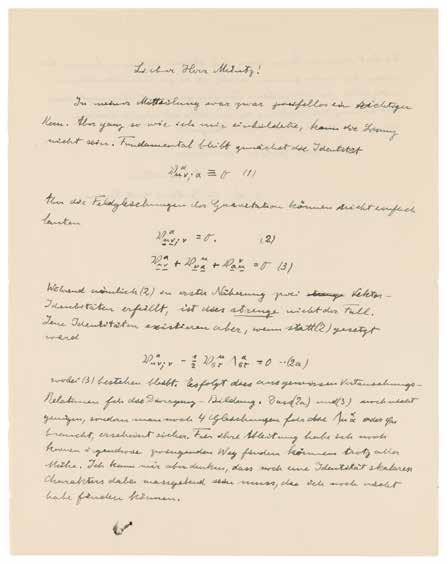 Lieber Herr Müntz!
In meiner Mitteilung war zwar zweifellos ein richtiger
Kern. Aber ganz so wie ich mir einbildete, kann die Lösung
nicht sein. Fundamental bleibt zunächst die Identität
(1)
Aber die Feldgleichungen der Gravitation können nicht einfach
lauten
= 0. (2)
= 0 (3)
Während nämlich (2) in erster Näherung zwei Vektor-
Identitäten erfüllt, ist dies strenge nicht der Fall.
Jene Identitäten existieren aber, wenn statt (2) gesetzt
wird
= 0 ··(2a)
wobei (3) bestehen bleibt. Es folgt dies aus gewissen Vertauschungs-
Relationen für die Divergenz-Bildung. Dass (2a) und (3) noch nicht
genügen, sondern man noch 4 Gleichungen für die oder
braucht, erscheint sicher. Für ihre Ableitung habe ich noch
keinen irgendwie zwingenden Weg finden können trotz aller
Mühe. Ich kann mir aber denken, dass noch eine Identität skalaren
Charakters dabei massgebend sein muss, die ich noch nicht
habe finden können.